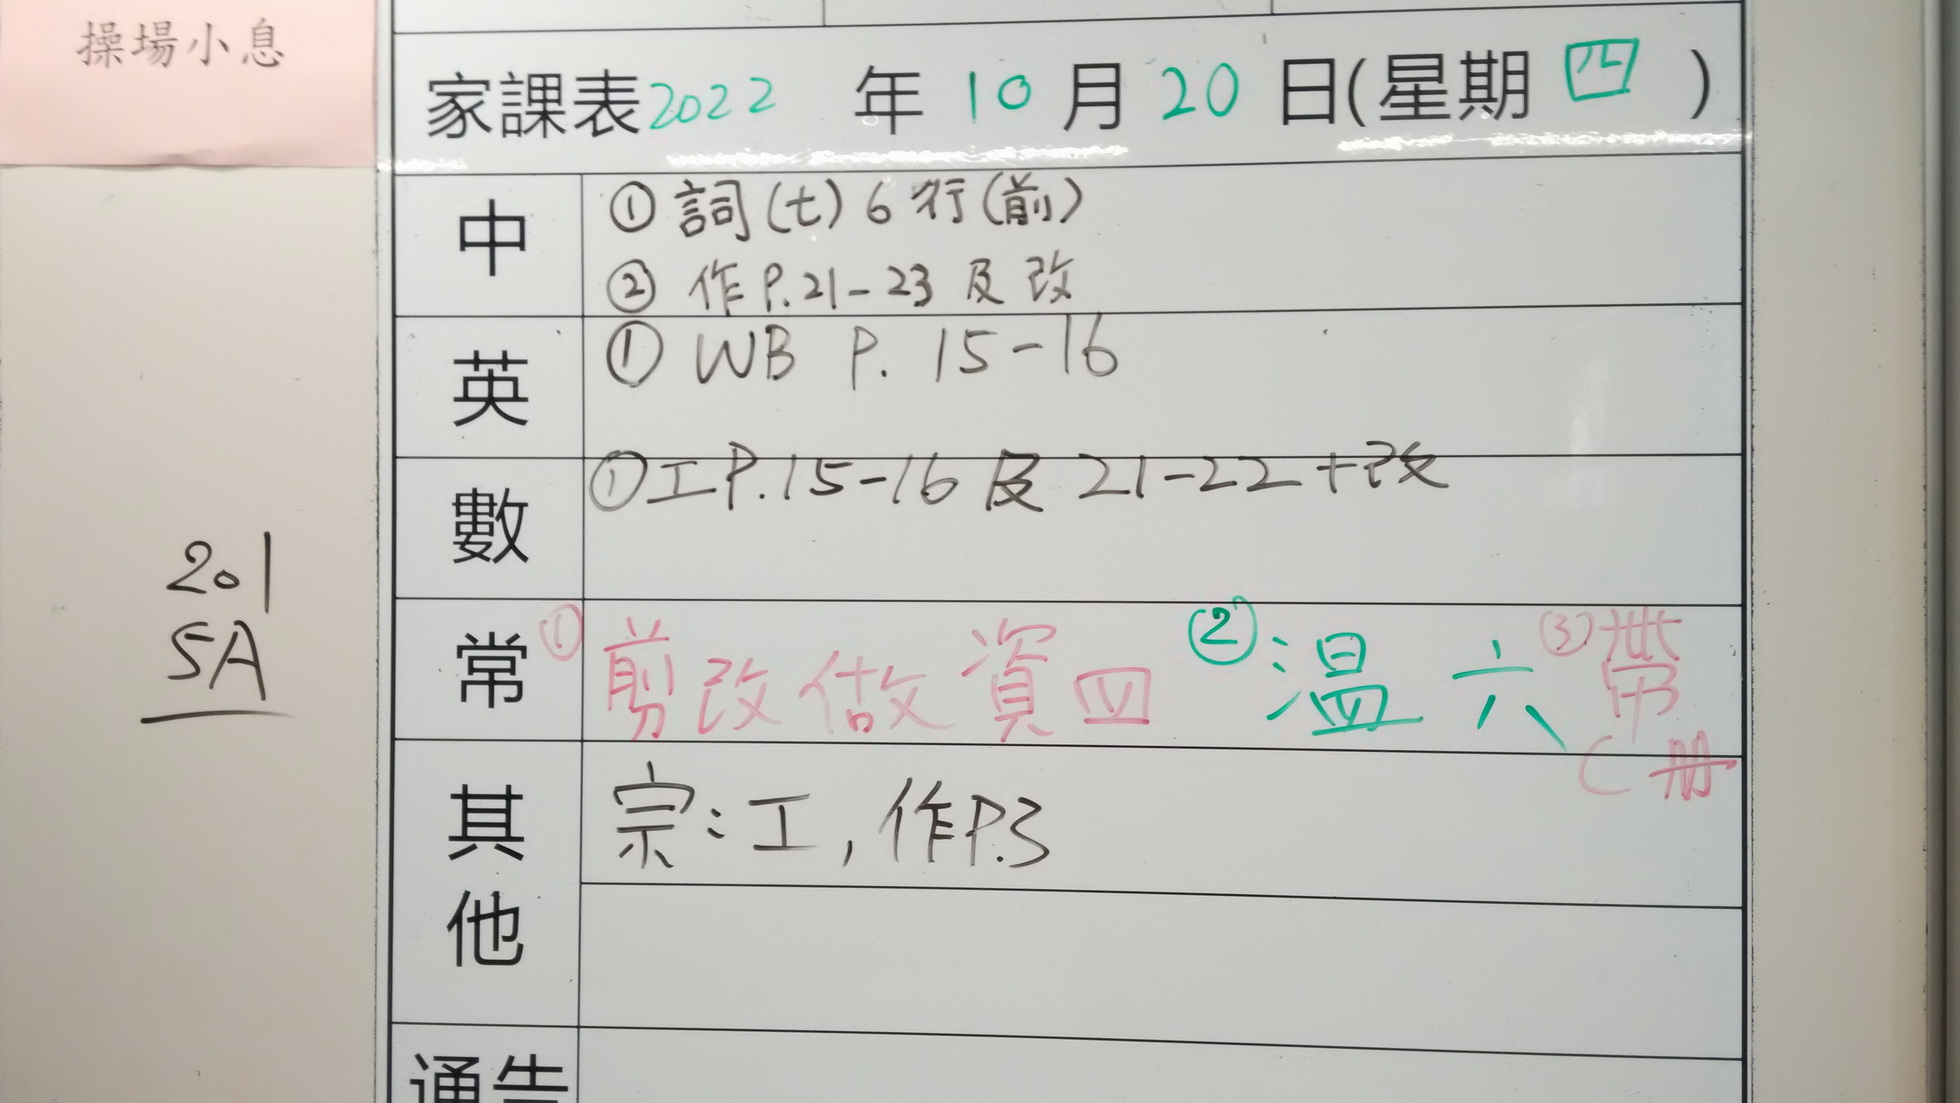 操場小息
家課表2022年10月20日(星期四)
中
①詞(七)6行(前)
②作P.21-23及改
英
①WB P. 15-16
數
①工P.15-16及21-22+改
常
①剪改做資四 ②溫六 ③帶
C冊
其他
宗:工,作P.3
通告
201
5A